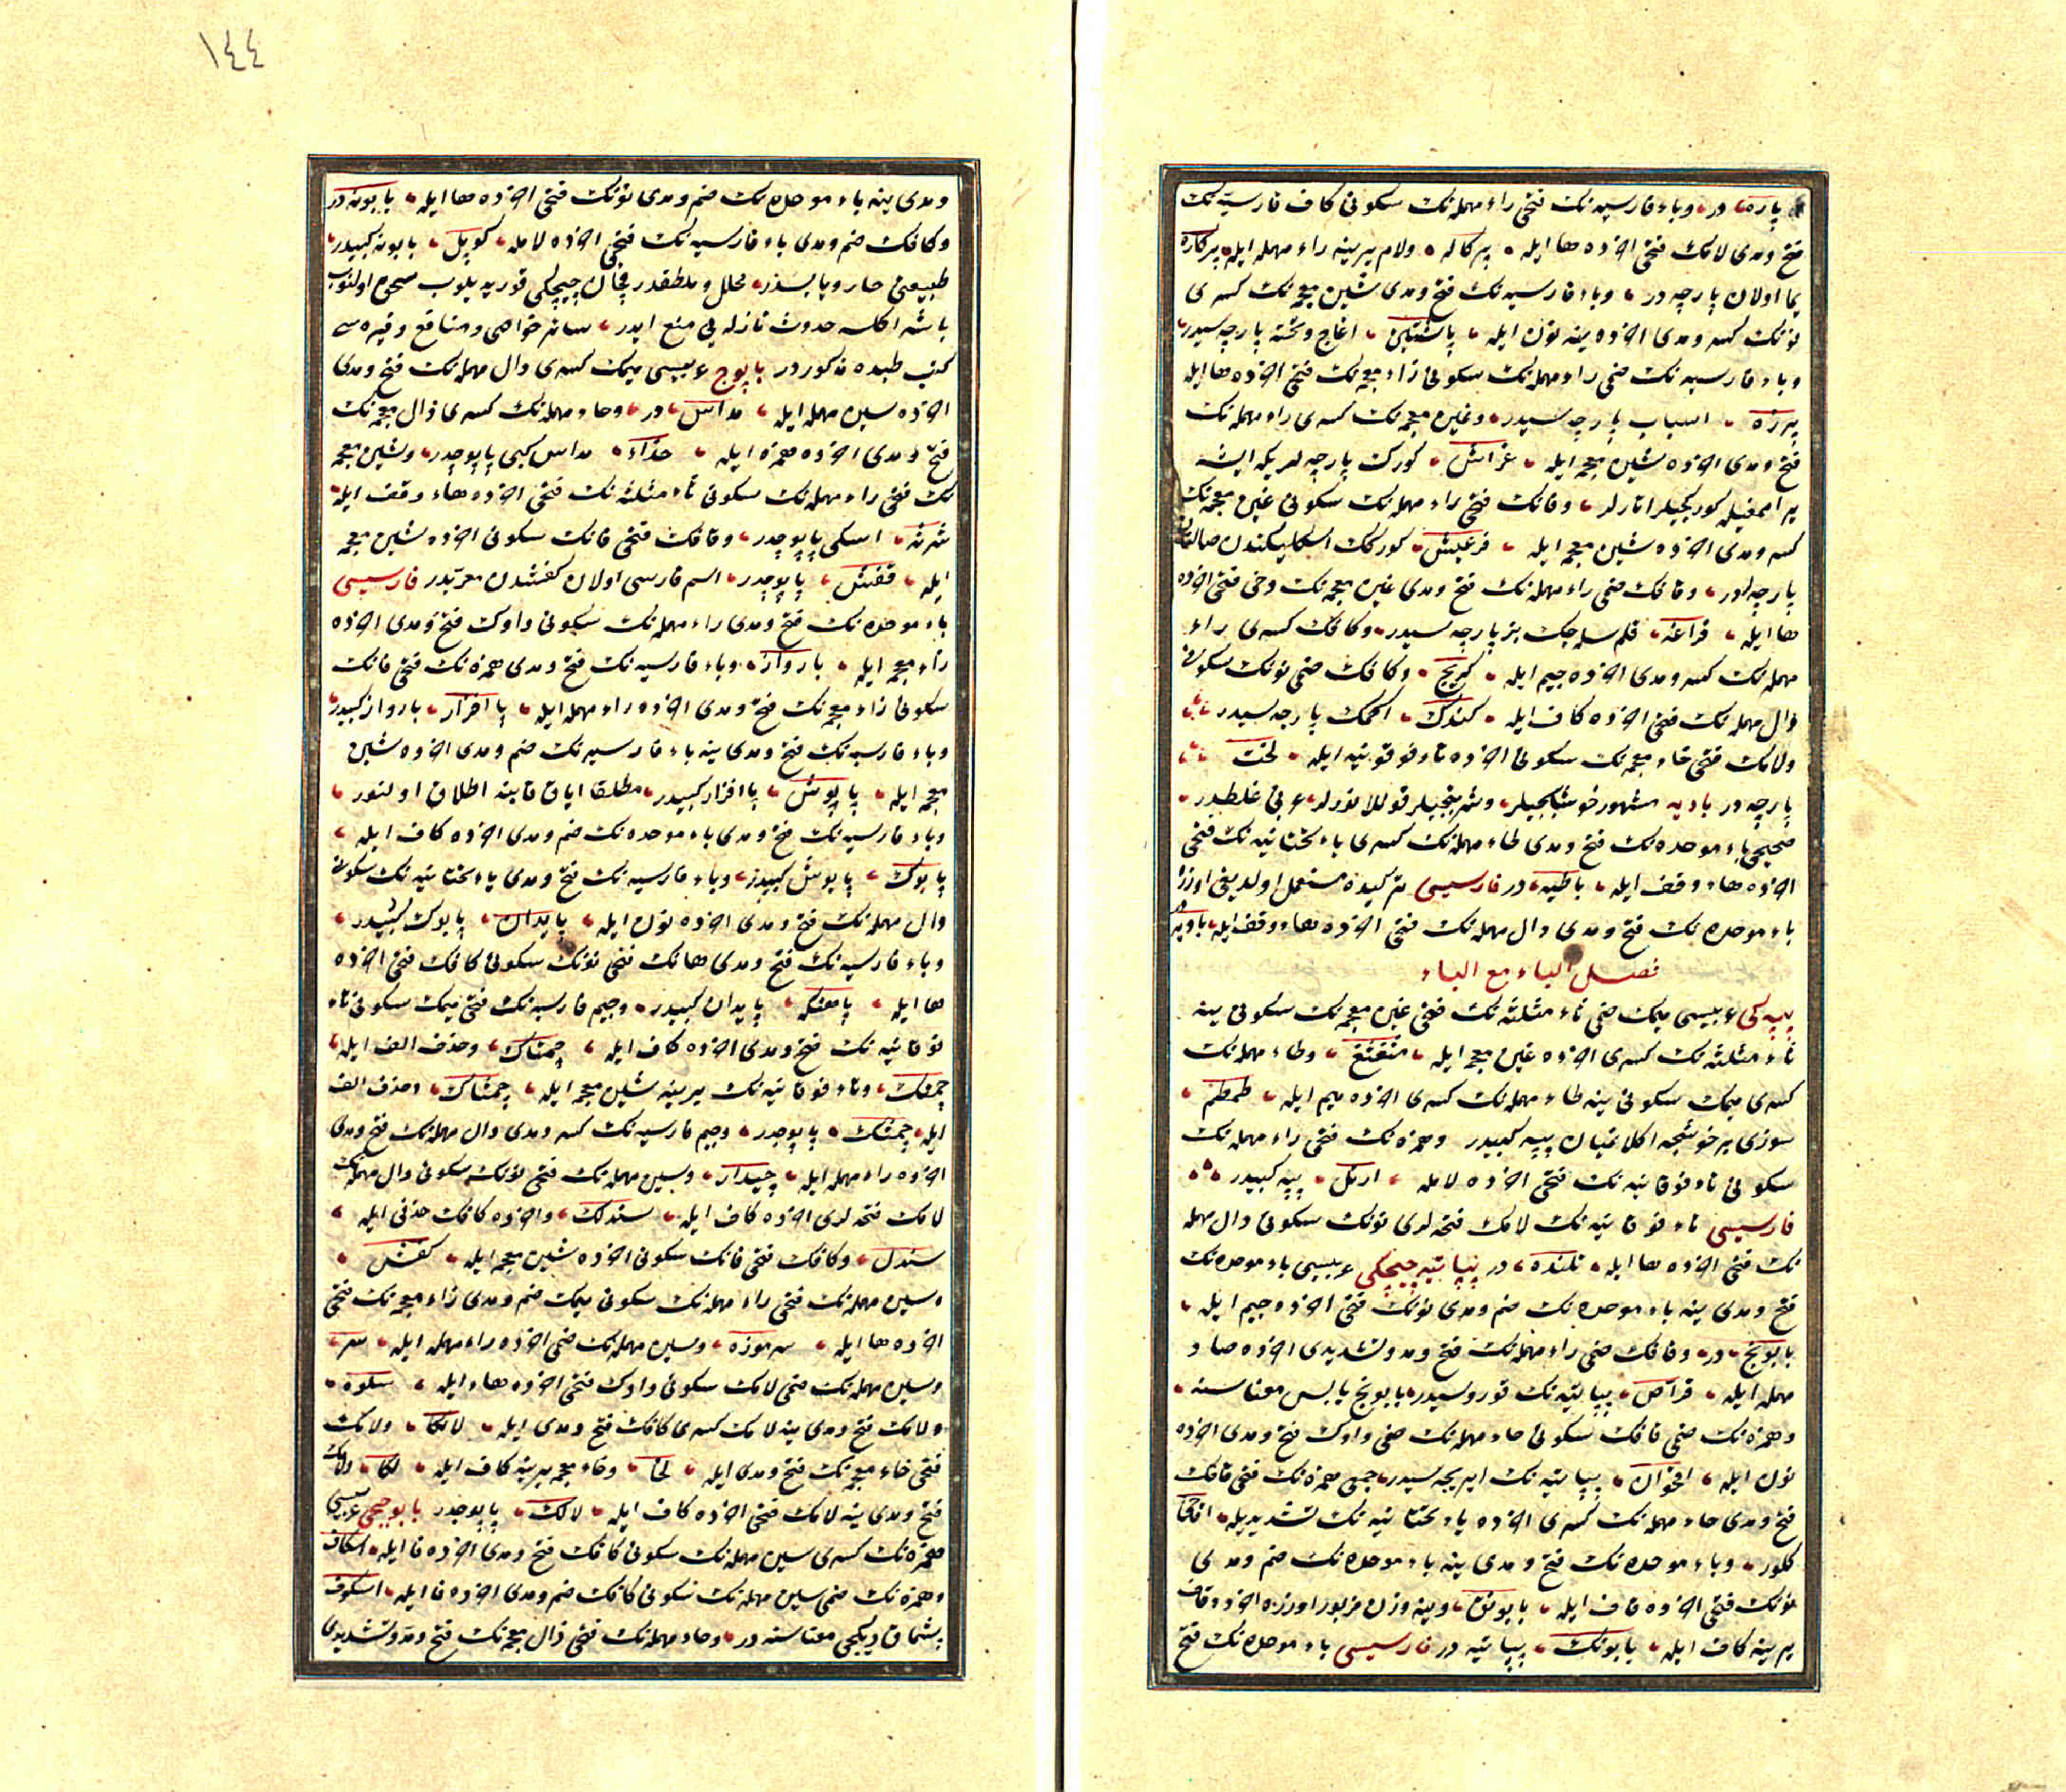 پاره در وباء فارسیه نك فتحی راء مهمله نك سكونی كاف فارسیه نك
فتح ومدی لامك فتحی اخرده ها ایله پركاله ولام یرینه راء مهمله ایله پركاره
یما اولان پارچه در وباء فارسیه نك فتح ومدی شین معجمه نك كسری
نونك كسر ومدی اخرده ینه نون ایله اغاج وتخته پارچه سیدر
وباء فارسیه نك ضمی راء مهمله نك سكونی زاء معجمه نك فتحی اخرده ها ایله
پرزه اسباب پارچه سیدر وغین معجمه نك كسری راء مهمله نك
فتح ومدی اخرده شین معجمه ایله غراش كورك پارچه لریكه ایشه
یرامغیله كوركجیلر اتارلر وفانك فتحی راء مهمله نك سكونی غین معجمه نك
كسر ومدی اخرده شین معجمه ایله فرغیش كورك اسكیلیكندن صالنان
پارچه لردر وقافك ضمی راء مهمله نك فتح ومدی غین معجمه نك دخی فتحی اخرده
ها ایله قراغه قلم سله جك بز پارچه سیدر وكافك كسری راء
مهمله نك كسر ومدی اخرده جیم ایله كریج وكافك ضمی نونك سكونی
دال مهمله نك فتحی اخرده كاف ایله كندك اكمك پارچه سیدر
ولامك فتحی خاء معجمه نك سكونی اخرده تاء فوقیه ایله لخت
پارچه در بادیه مشهور خوشابجیلر وشربتجیلر قوللانورلر عربی غلطیدر
صحیحی باء موحده نك فتح ومدی طاء مهمله نك كسری یاء تحتانیه نك فتحی
اخرده هاء وقف ایله باطیه در فارسیسی تركیده مستعمل اولدیغی اوزره
باء موحده نك فتح ومدی دال مهمله نك فتحی اخرده هاء وقف ایله بادیه
فصل الباء مع الباء
پپه كی عربیسی میمك ضمی ثاء مثلثه نك فتحی غین معجمه نك سكونی ینه
ثاء مثلثه نك كسری اخرده غین معجمه ایله مثغثغ وطاء مهمله نك
كسری میمك سكونی ینه طاء مهمله نك كسری اخرده میم ایله طمطم
سوزی بر خوشجه اكلانمیان پپه كبیدر وهمزه نك فتحی راء مهمله نك
سكونی تاء فوقانیه نك فتحی اخرده لامله ارتل پپه كبیدر
فارسیسی تاء فوقانیه نك لامك فتحه لری نونك سكونی دال مهمله
نك فتحی اخرده ها ایله تلنده در پپاتیه چیچكی عربیسی باء موحده نك
فتح ومدی ینه باء موحده نك ضم ومدی نونك فتحی اخرده جیم ایله
بابونج در وقافك ضمی راء مهمله نك فتح ومد وتشدیدی اخرده صاد
مهمله ایله قراص پپاتیه نك قوروسیدر بابونج یابس معناسنه
وهمزه نك ضمی قافك سكونی حاء مهمله نك ضمی واوك فتح ومدی اخرده
نون ایله اقحوان پپاتیه نك ایریجه سیدر جمعی همزه نك فتحی قافك
فتح ومدی حاء مهمله نك كسری اخرده یاء تحتانیه نك تشدیدیله اقاحی
كلور وباء موحده نك فتح ومدی ینه باء موحده نك ضم ومدی
نونك فتحی اخرده قاف ایله بابونق وینه وزن مزبور اوزره اخرده قاف
یرینه كاف ایله بابونك پپاتیه در فارسیسی باء موحده نك فتح
ومدی ینه باء موحده نك ضم ومدی نونك فتحی اخرده ها ایله بابونه در
وكافك ضم ومدی باء فارسیه نك فتحی اخرده لامله كوپل بابونه كبیدر
طبیعتی حار ویابسدر محلل وملطفدر چیچكی قوریدیلوب سحق اولنوب
باشه اكلسه حدوث نازله یی منع ایدر سائر خواصی ومنافع وغیره سی
كتب طبده مذكوردر پاپوج عربیسی میمك كسری دال مهمله نك فتح ومدی
اخرده سین مهمله ایله مداس در وحاء مهمله نك كسری ذال معجمه نك
فتح ومدی اخرده همزه ایله حذاء مداس كبی پاپوجدر وشین معجمه
نك فتحی راء مهمله نك سكونی ثاء مثلثه نك فتحی اخرده هاء وقف ایله
شرثه اسكی پاپوجدر وقافك فتحی فانك سكونی اخرده شین معجمه
ایله قفش پاپوجدر اسم فارسی اولان كفشدن معربدر فارسیسی
باء موحده نك فتح ومدی راء مهمله نك سكونی واوك فتح ومدی اخرده
زاء معجمه ایله باروز وباء فارسیه نك فتح ومدی همزه نك فتحی فانك
سكونی زاء معجمه نك فتح ومدی اخرده راء مهمله ایله پاافزار باروز كبیدر
وباء فارسیه نك فتح ومدی ینه باء فارسیه نك ضم ومدی اخرده شین
معجمه ایله پاپوش پاافزار كبیدر مطلقا ایاق قابنه اطلاق اولنور
وباء فارسیه نك فتح ومدی باء موحده نك ضم ومدی اخرده كاف ایله
پابوك پاپوش كبیدر وباء فارسیه نك فتح ومدی یاء تحتانیه نك سكونی
دال مهمله نك فتح ومدی اخرده نون ایله پایدان پابوك كبیدر
وباء فارسیه نك فتح ومدی هانك فتحی نونك سكونی كافك فتحی اخرده
ها ایله پاهنكه پایدان كبیدر وجیم فارسیه نك فتحی میمك سكونی تاء
فوقانیه نك فتح ومدی اخرده كاف ایله چمتاك وحذف الف ایله
چمتك وتاء فوقانیه نك یرینه شین معجمه ایله چمشاك وحذف الف
ایله چمشك پاپوجدر وجیم فارسیه نك كسر ومدی دال مهمله نك فتح ومدی
اخرده راء مهمله ایله چیدار وسین مهمله نك فتحی نونك سكونی دال مهمله نك
لامك فتحه لری اخرده كاف ایله سندلك واخرده كافك حذفی ایله
سندل وكافك فتحی فانك سكونی اخرده شین معجمه ایله كفش
وسین مهمله نك فتحی راء مهمله نك سكونی میمك ضم ومدی زاء معجمه نك فتحی
اخرده ها ایله سرموزه وسین مهمله نك ضمی اخرده راء مهمله ایله سر
وسین مهمله نك ضمی لامك سكونی واوك فتحی اخرده هاء ایله سلوه
ولامك فتح ومدی ینه لامك كسری كافك فتح ومدی ایله لالكا ولامك
فتحی خاء معجمه نك فتح ومدی ایله لخا وخاء معجمه یرینه كاف ایله لكا ولامك
فتح ومدی ینه لامك فتحی اخرده كاف ایله لالك پاپوجدر پاپوجی عربیسی
همزه نك كسری سین مهمله نك سكونی كافك فتح ومدی اخرده فا ایله اسكاف
وهمزه نك ضمی سین مهمله نك سكونی كافك ضم ومدی اخرده فا ایله اسكوف
پشماق دیكجی معناسنه در وحاء مهمله نك فتحی ذال معجمه نك فتح ومد وتشدیدی
١٤٤